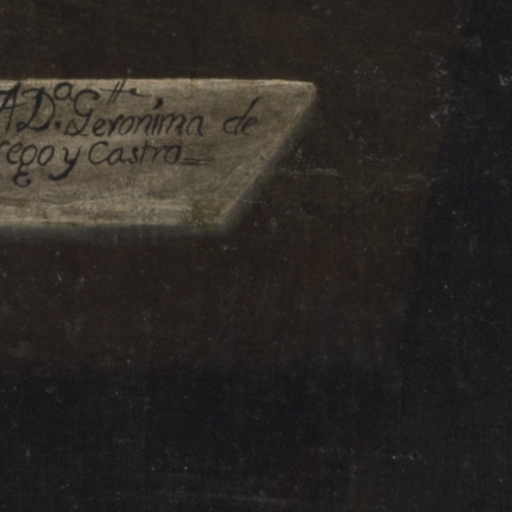 A D.ª Geronima de
rego y Castro